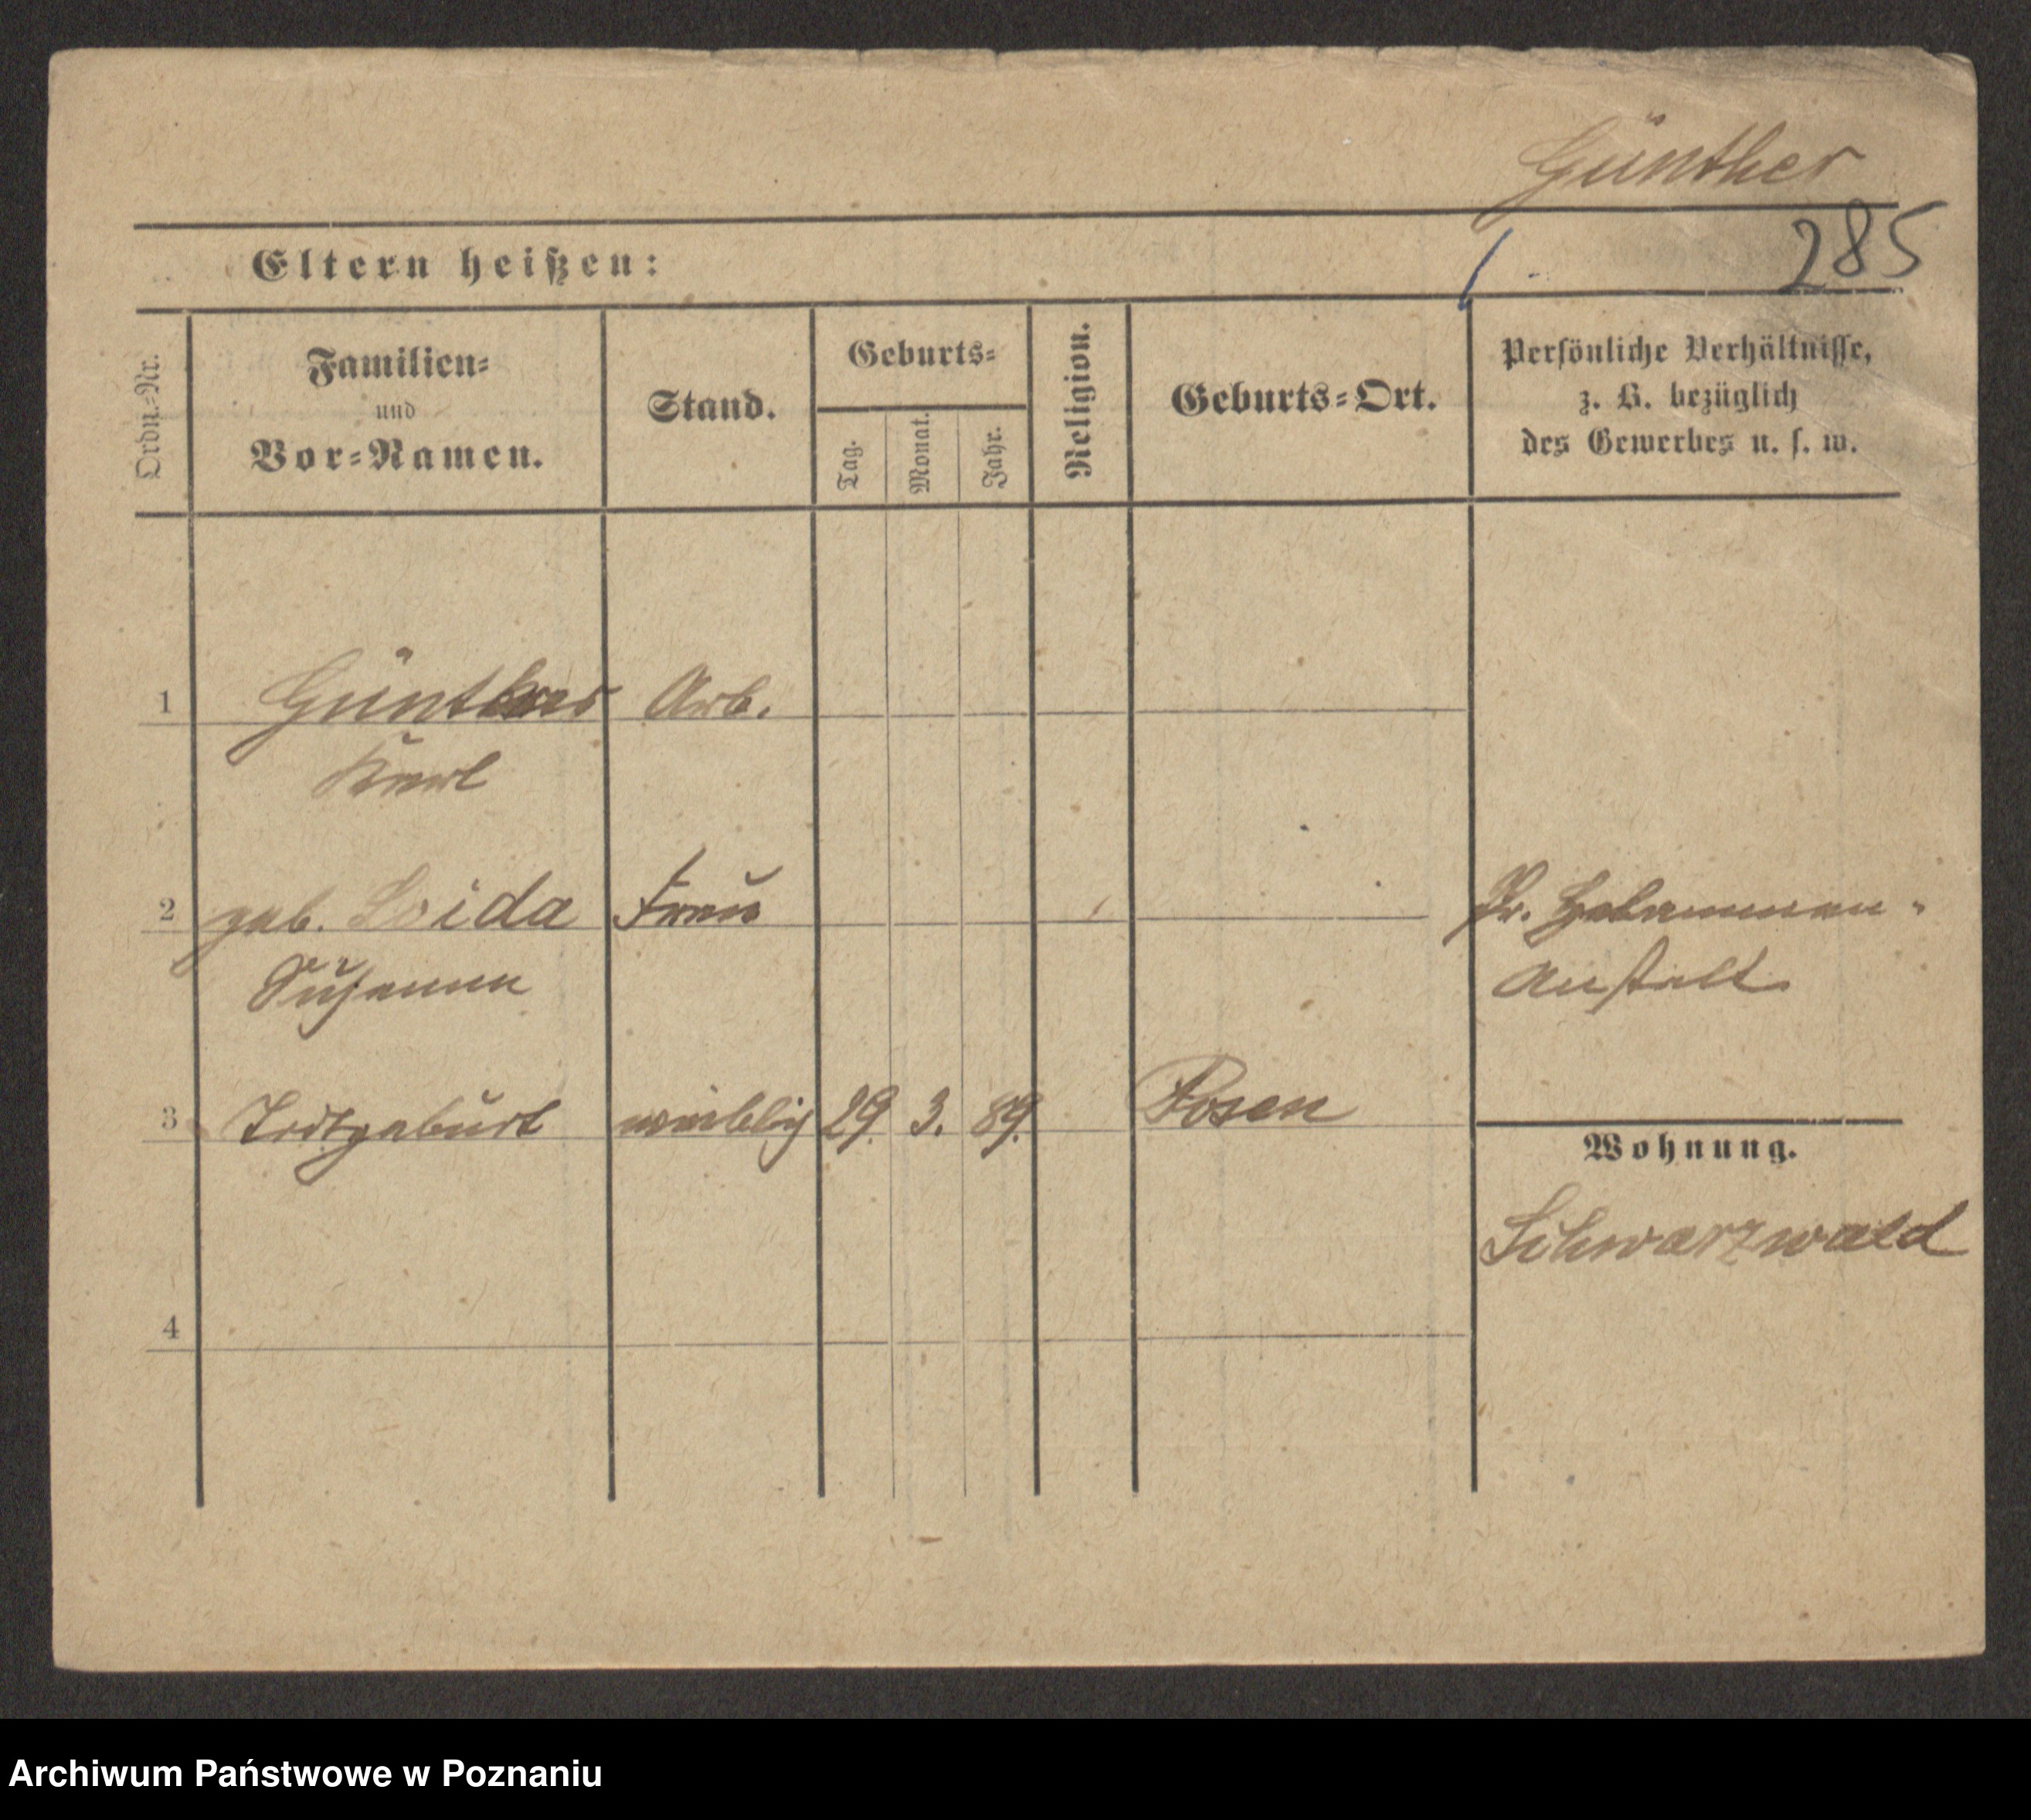 Günther
285
Eltern heißen:
Ordn.-Nr.
Familien-
und
Vor-Namen.
Stand.
Geburts-
Tag.
Monat.
Jahr.
Religion.
Geburts-Ort.
Persönliche Verhältnisse,
z. B. bezüglich
des Gewerbes u. s. w.
1 Günther Arb.
Karl
2 geb. Loida Frau Pr. Hebammen-
Susanna Anstalt
3 Todtgeburt weiblich 29. 3. 89. Posen
Wohnung.
Schwarzwald
4
Archiwum Państwowe w Poznaniu